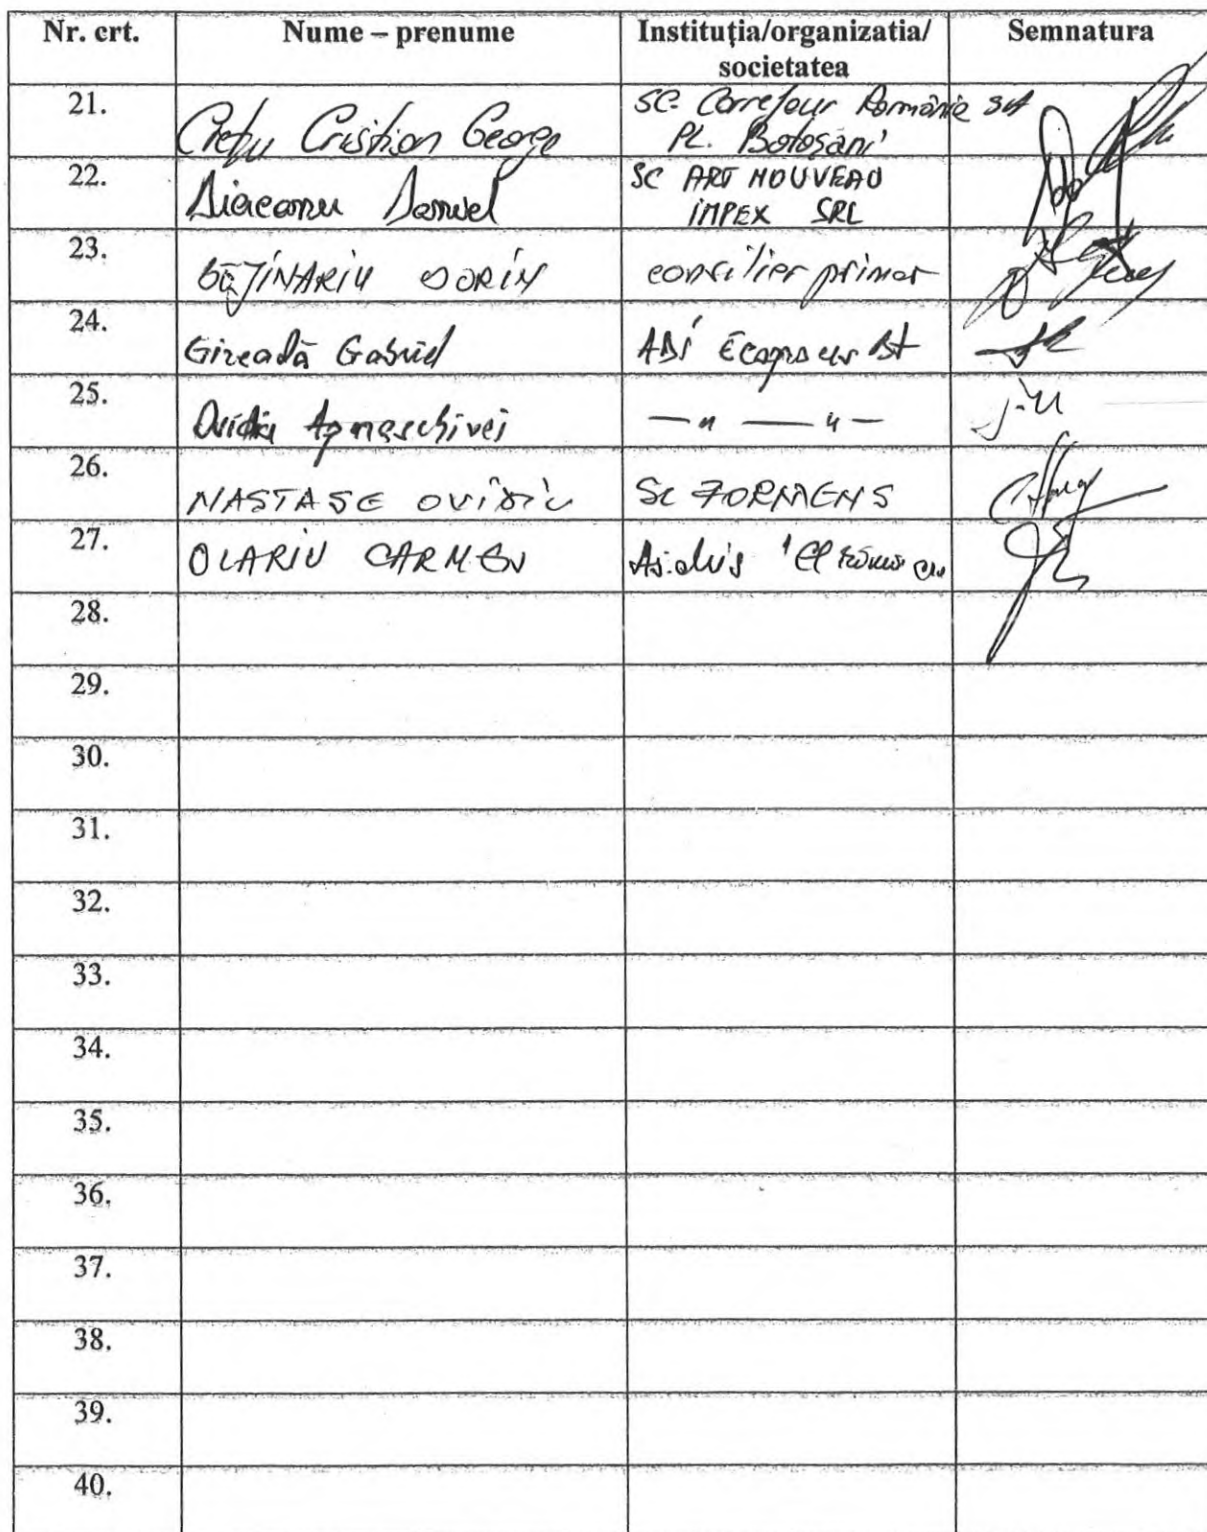 Nr. crt. Nume – prenume Instituția/organizatia/ Semnatura
societatea
21. Crețu Cristian George SC Carrefour România SA
PL. Botoșani
22. Daniel SC ART NOUVEAU
IMPEX SRL
23. BEJINARIU DORIN consilier primar
24. Gireadă Gabriel ADI Ecoproces Bt
25. Ovidiu — " — " —
26. NASTASE OVIDIU SC FORMENS
27. OLARIU CARMEN
28.
29.
30.
31.
32.
33.
34.
35.
36.
37.
38.
39.
40.